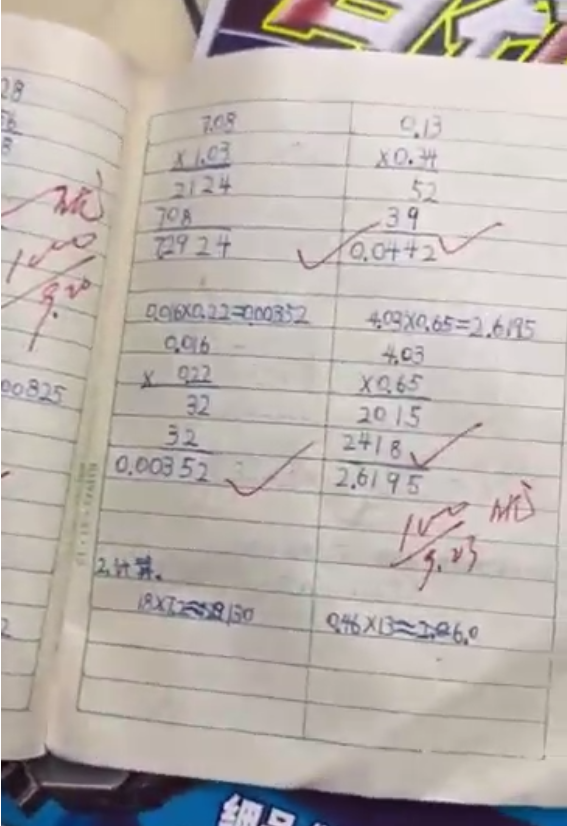 7.08
×1.03
2124
708
72924
0.13
×0.34
52
39
0.0442
0.016×0.22=0.00352
0.016
× 0.22
32
32
0.00352
4.03×0.65=2.6195
4.03
×0.65
2015
2418
2.6195
100
9.23
2.计算。
0.46×13≈
28
00825
100
9.20
2